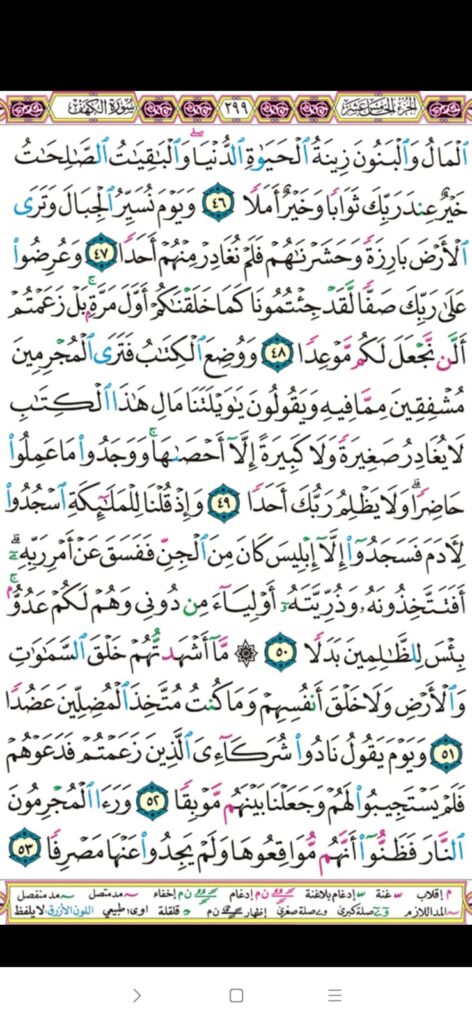 الجزء الخامس عشر ٢٩٩ سورة الكهف
ٱلْمَالُ وَٱلْبَنُونَ زِينَةُ ٱلْحَيَوٰةِ ٱلدُّنْيَا ۖ وَٱلْبَٰقِيَٰتُ ٱلصَّٰلِحَٰتُ
خَيْرٌ عِندَ رَبِّكَ ثَوَابًا وَخَيْرٌ أَمَلًا ٤٦ وَيَوْمَ نُسَيِّرُ ٱلْجِبَالَ وَتَرَى
ٱلْأَرْضَ بَارِزَةً وَحَشَرْنَٰهُمْ فَلَمْ نُغَادِرْ مِنْهُمْ أَحَدًا ٤٧ وَعُرِضُوا۟
عَلَىٰ رَبِّكَ صَفًّا لَّقَدْ جِئْتُمُونَا كَمَا خَلَقْنَٰكُمْ أَوَّلَ مَرَّةٍۭ ۚ بَلْ زَعَمْتُمْ
أَلَّن نَّجْعَلَ لَكُم مَّوْعِدًا ٤٨ وَوُضِعَ ٱلْكِتَٰبُ فَتَرَى ٱلْمُجْرِمِينَ
مُشْفِقِينَ مِمَّا فِيهِ وَيَقُولُونَ يَٰوَيْلَتَنَا مَالِ هَٰذَا ٱلْكِتَٰبِ
لَا يُغَادِرُ صَغِيرَةً وَلَا كَبِيرَةً إِلَّآ أَحْصَىٰهَا ۚ وَوَجَدُوا۟ مَا عَمِلُوا۟
حَاضِرًا ۗ وَلَا يَظْلِمُ رَبُّكَ أَحَدًا ٤٩ وَإِذْ قُلْنَا لِلْمَلَٰٓئِكَةِ ٱسْجُدُوا۟
لِـَٔادَمَ فَسَجَدُوٓا۟ إِلَّآ إِبْلِيسَ كَانَ مِنَ ٱلْجِنِّ فَفَسَقَ عَنْ أَمْرِ رَبِّهِۦٓ ۗ
أَفَتَتَّخِذُونَهُۥ وَذُرِّيَّتَهُۥٓ أَوْلِيَآءَ مِن دُونِى وَهُمْ لَكُمْ عَدُوٌّۢ ۚ
بِئْسَ لِلظَّٰلِمِينَ بَدَلًا ٥٠ ۞ مَّآ أَشْهَدتُّهُمْ خَلْقَ ٱلسَّمَٰوَٰتِ
وَٱلْأَرْضِ وَلَا خَلْقَ أَنفُسِهِمْ وَمَا كُنتُ مُتَّخِذَ ٱلْمُضِلِّينَ عَضُدًا
٥١ وَيَوْمَ يَقُولُ نَادُوا۟ شُرَكَآءِىَ ٱلَّذِينَ زَعَمْتُمْ فَدَعَوْهُمْ
فَلَمْ يَسْتَجِيبُوا۟ لَهُمْ وَجَعَلْنَا بَيْنَهُم مَّوْبِقًا ٥٢ وَرَءَا ٱلْمُجْرِمُونَ
ٱلنَّارَ فَظَنُّوٓا۟ أَنَّهُم مُّوَاقِعُوهَا وَلَمْ يَجِدُوا۟ عَنْهَا مَصْرِفًا ٥٣
م إقلاب غنة إدغام بلاغنة ن م إدغام ن م إخفاء مد متصل مد منفصل
المد اللازم صلة كبرى صلة صغرى إظهار ن م قلقلة اوى: طبيعي اللون الأزرق: لا يلفظ